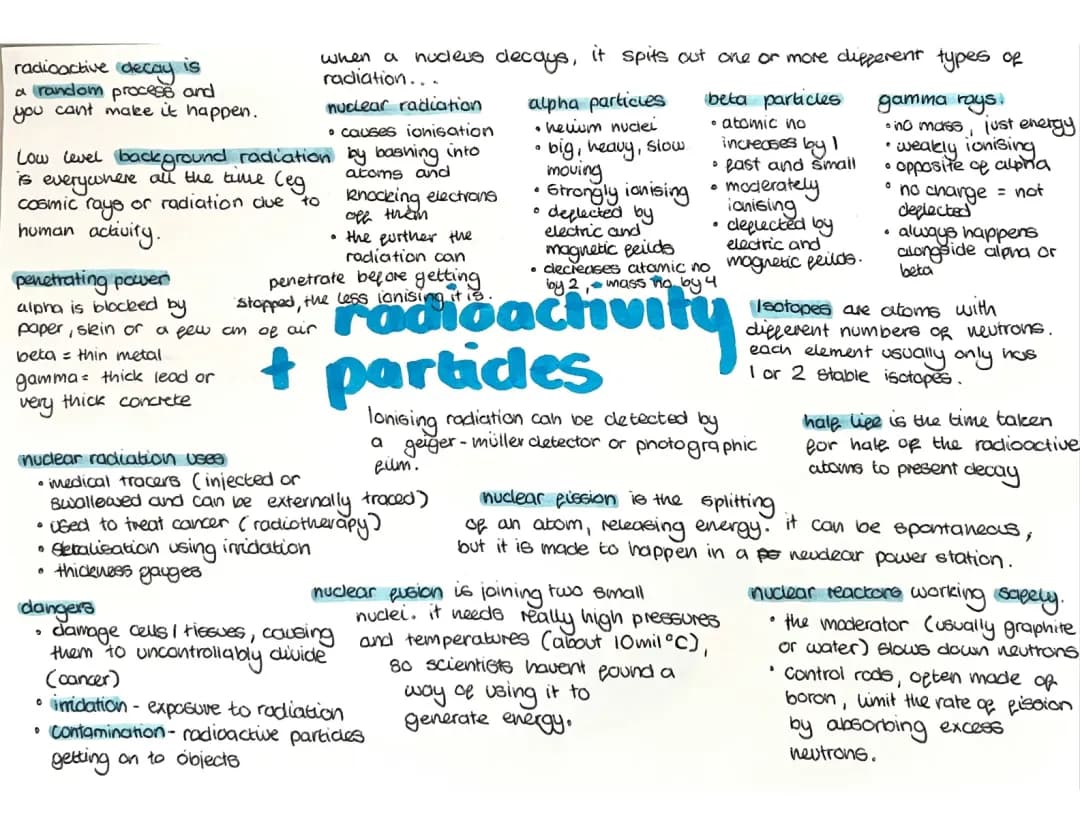 radioactive decay is
a random process and
you cant make it happen.
Low level background radiation
is everywhere all the time (eg
cosmic rays or radiation due to
human activity.
when a nucleus decays, it spits out one or more different types of
radiation...
nuclear radiation
• causes ionisation
by bashing into
atoms and
knocking electrons
off them
• the further the
radiation can
penetrate before getting
stopped, the less ionising it is.
alpha particles
• helium nuclei
• big, heavy, slow
moving
• strongly ionising
• deflected by
electric and
magnetic feilds
• decreases atomic no
by 2, • mass no by 4
beta particles
• atomic no
increases by 1
• fast and small
• moderately
ionising
• deflected by
electric and
magnetic feilds.
gamma rays.
• no mass, just energy
• weakly ionising
• opposite of alpha
• no charge = not
deflected
• always happens
alongside alpha or
beta
penetrating power
alpha is blocked by
paper, skin or a few cm of air
beta = thin metal
gamma = thick lead or
very thick concrete
radioactivity
+ particles
Isotopes are atoms with
different numbers of neutrons.
each element usually only has
1 or 2 stable isotopes.
Ionising radiation can be detected by
a geiger-müller detector or photographic
film.
half life is the time taken
for half of the radioactive
atoms to present decay
nuclear radiation uses
• medical tracers (injected or
swallowed and can be externally traced)
• used to treat cancer (radiotherapy)
• steralisation using irridation
• thickness gauges
nuclear fission is the splitting
of an atom, releasing energy. it can be spontaneous,
but it is made to happen in a neuclear power station.
dangers
• damage cells / tissues, causing
them to uncontrollably divide
(cancer)
• irridation - exposure to radiation
• contamination - radioactive particles
getting on to objects
nuclear fusion is joining two small
nuclei. it needs really high pressures
and temperatures (about 10mil°C),
so scientists havent found a
way of using it to
generate energy.
nuclear reactors working safely.
• the moderator (usually graphite
or water) slows down neutrons
• control rods, often made of
boron, limit the rate of fission
by absorbing excess
neutrons.